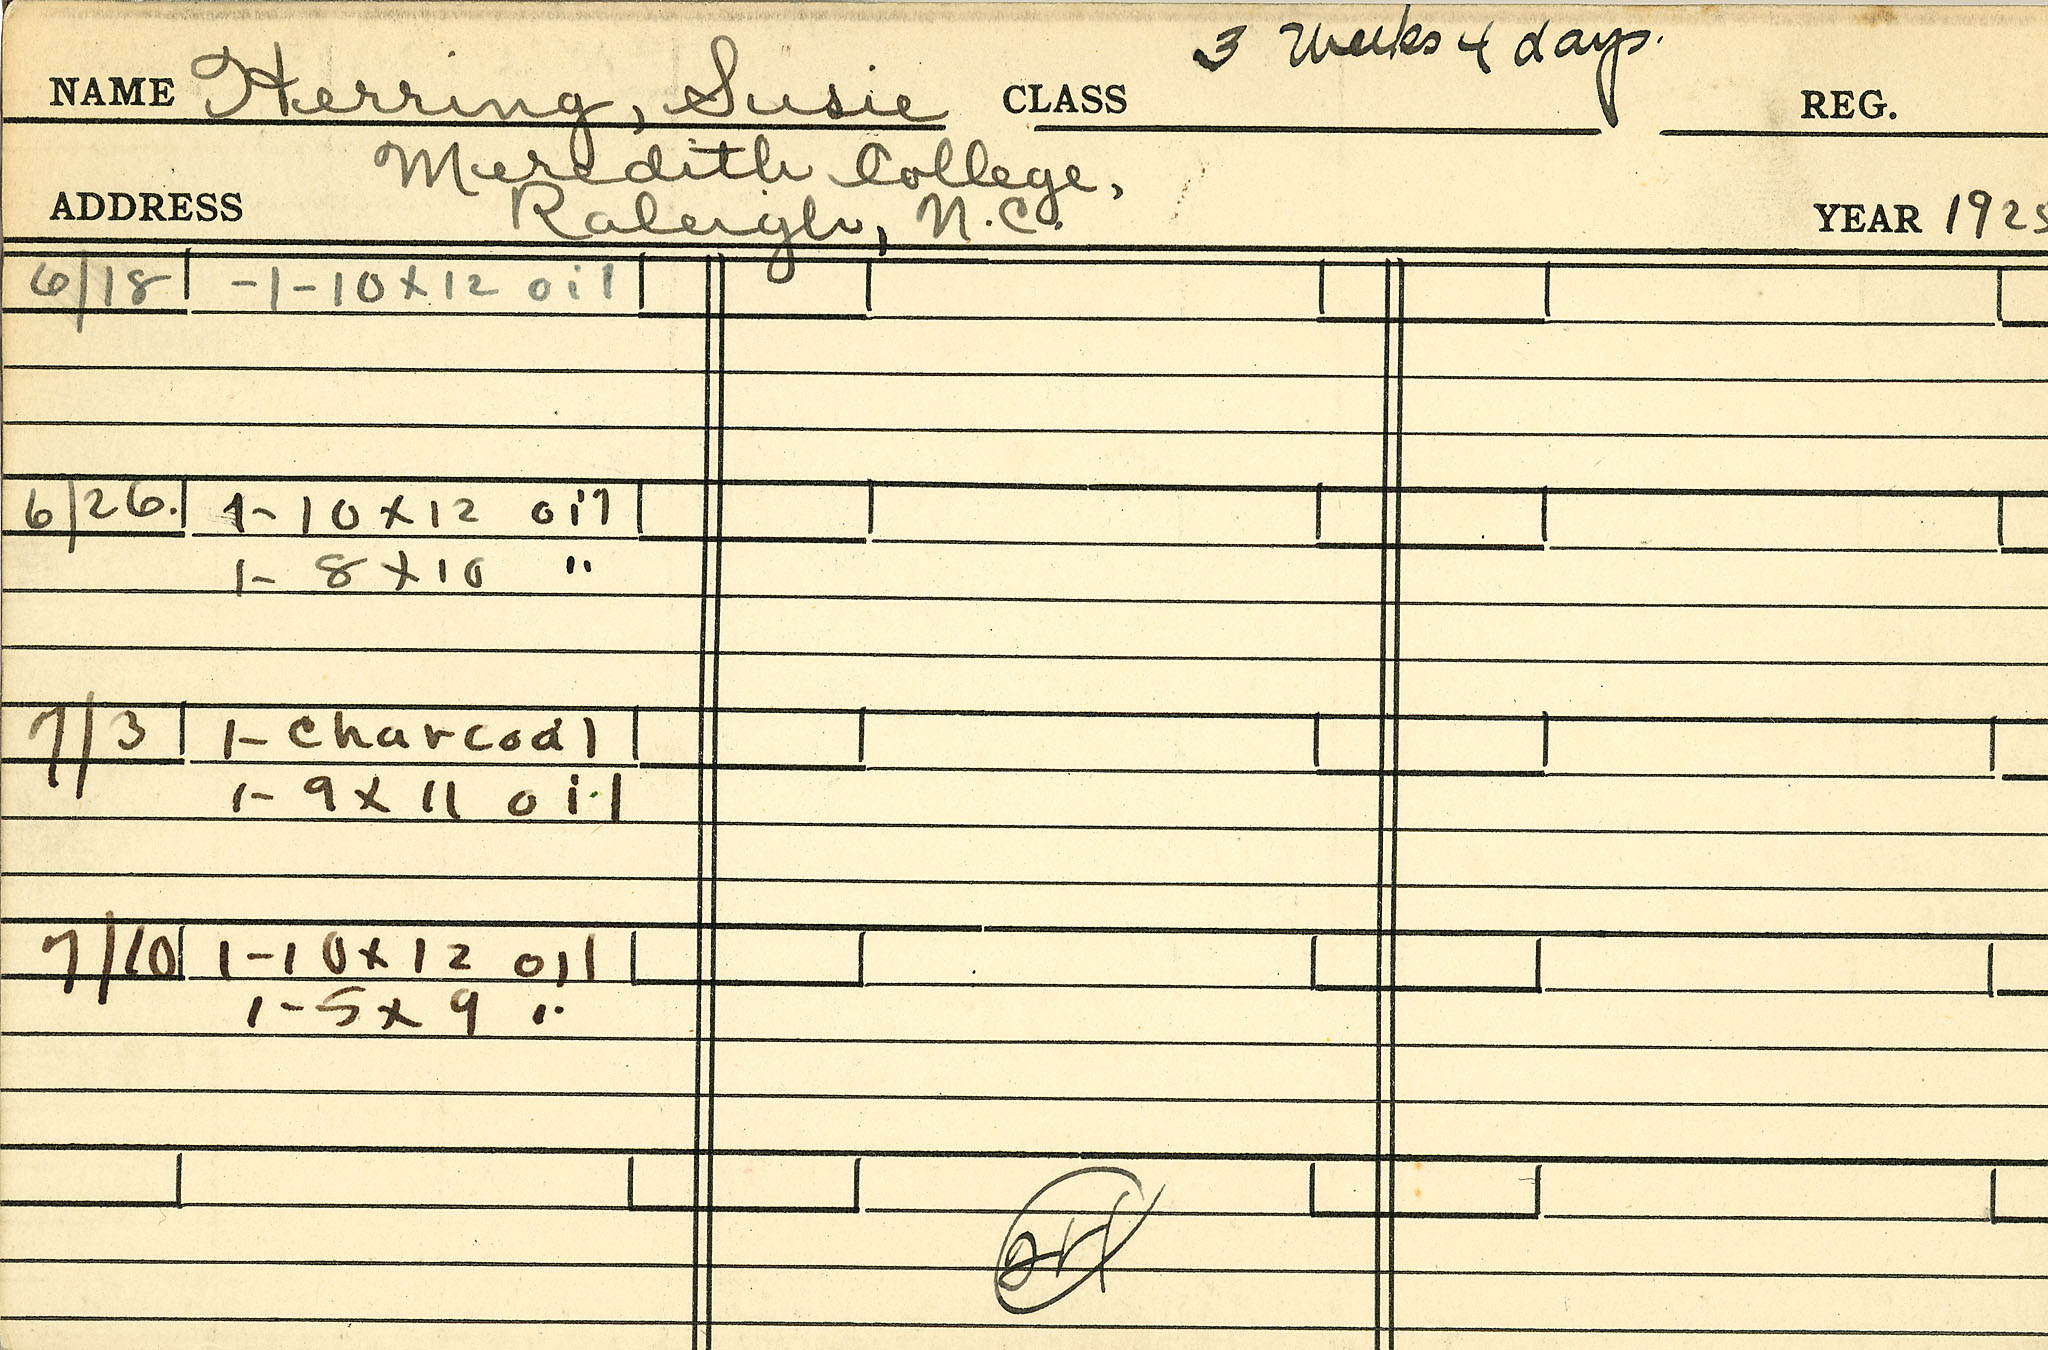 3 Weeks 4 days.
NAME Herring, Susie CLASS REG.
Meredith College,
ADDRESS Raleigh, N.C. YEAR 1925
6/18 -1-10x12 oil
6/26. 1-10x12 oil
1- 8x10 "
7/3 1- charcoal
1- 9x11 oil
7/10 1-10x12 oil
1-5x9 "